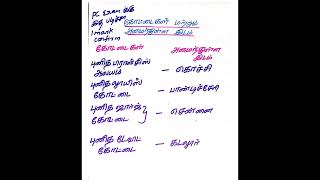 PC Exam க்கு
இது படிச்சா
1 mark
confirm
கோட்டைகள் மற்றும்
அமைந்துள்ள இடம்
கோட்டைகள் அமைந்துள்ள இடம்
புனித பிரான்சிஸ்
ஆலயம் – கொச்சி
புனித லூயிஸ்
கோட்டை – பாண்டிச்சேரி
புனித ஜார்ஜ்
கோட்டை – சென்னை
புனித டேவிட்
கோட்டை – கடலூர்